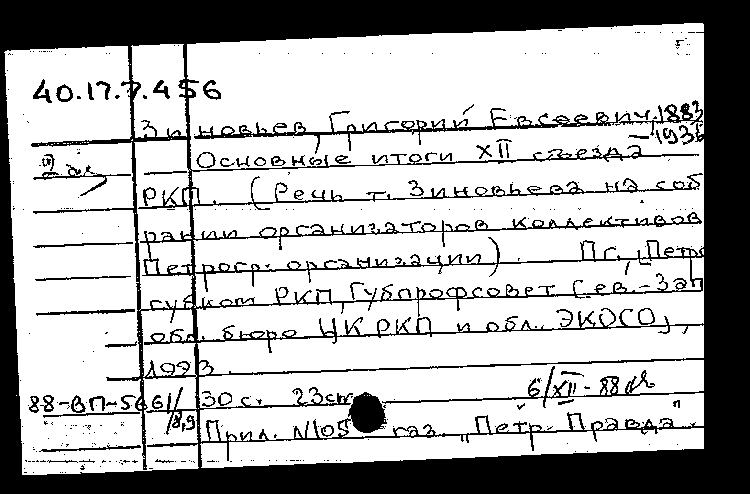 40.17.7.456
Зиновьев, Григорий Евсеевич, 1883
–1936
Основные итоги XII съезда
2 экз
РКП. (Речь т. Зиновьева на соб
рании организаторов коллективов
Петрогр. организации). Пг., [Петро
губком РКП, Губпрофсовет Сев.-Зап
обл. бюро ЦК РКП и обл. ЭКОСО],
1923.
88-ВП-5661/8,9 30 с. 23см 6/XII-88
Прил. N105 газ. „Петр. Правда".